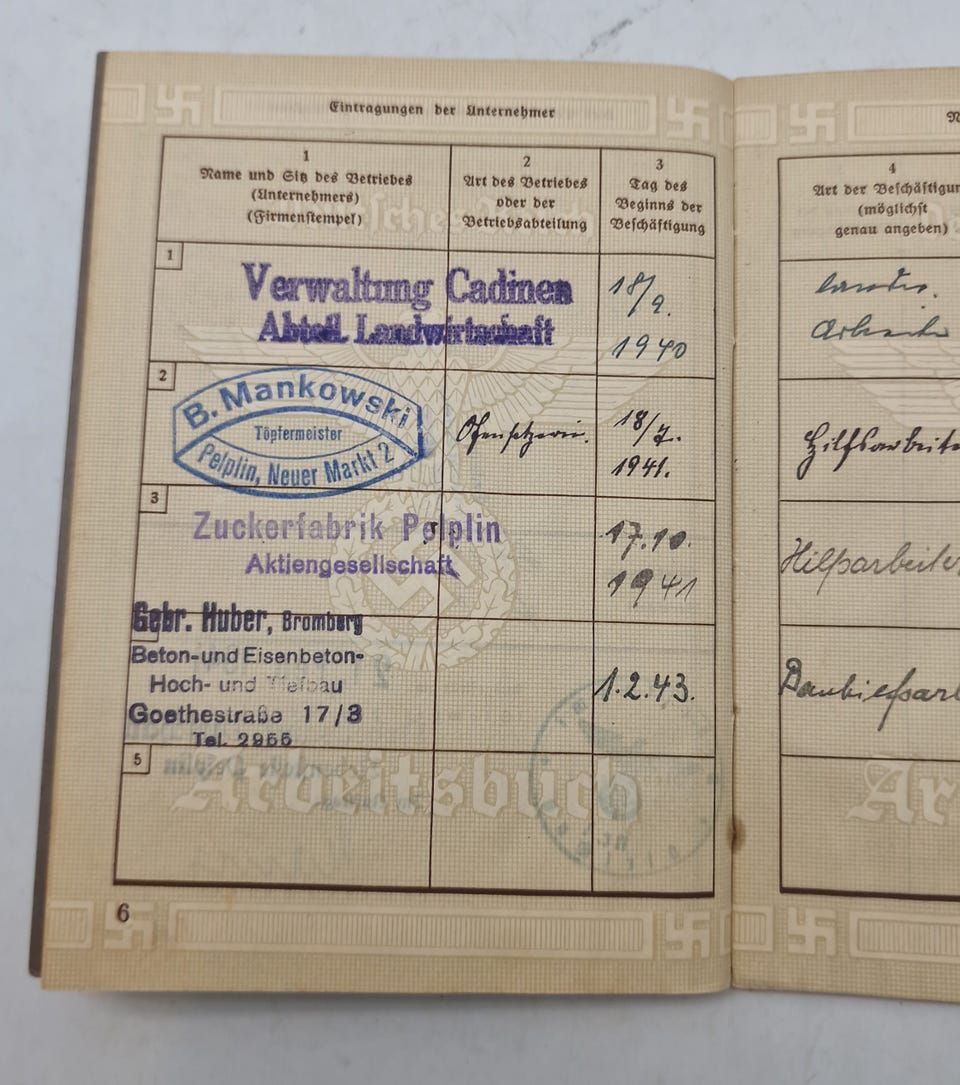 Eintragungen der Unternehmer
1
Name und Sitz des Betriebes
(Unternehmers)
(Firmenstempel)
2
Art des Betriebes
oder der
Betriebsabteilung
3
Tag des
Beginns der
Beschäftigung
1
Verwaltung Cadinen
Abteil. Landwirtschaft
18/9.
1940
2
B. Mankowski
Töpfermeister
Pelplin, Neuer Markt 2
Ofensetzerei.
18/7.
1941.
3
Zuckerfabrik Pelplin
Aktiengesellschaft
17.10.
1941
Gebr. Huber, Bromberg
Beton- und Eisenbeton-
Hoch- und Tiefbau
Goethestraße 17/3
Tel. 2955
1.2.43.
5
Arbeitsbuch
6
4
Art der Beschäftigun
(möglichst
genau angeben)
Arbeite
Hilfsarbeite
Hilfsarbeiter
Bauhilfsar
Ar